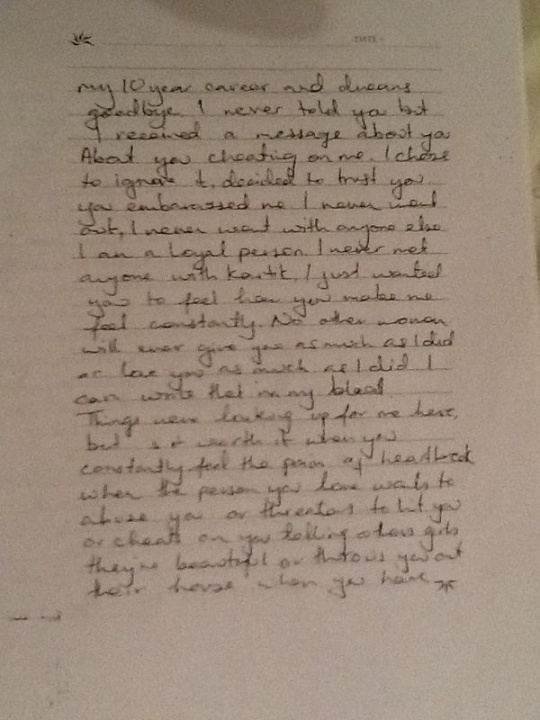 DATE
my 10 year career and dreams
goodbye. I never told you but
I received a message about you
About you cheating on me. I chose
to ignore it, decided to trust you
you embarassed me I never went
out, I never went with anyone else
I am a loyal person. I never met
anyone with Kartik, I just wanted
you to feel how you make me
feel constantly. No other woman
will ever give you as much as I did
or love you as much as I did I
can write that in my blood.
Things were looking up for me here,
but is it worth it when you
constantly feel the pain of heartbreak
when the person you love wants to
abuse you or threatens to hit you
or cheats on you telling others girls
they're beautiful or throws you out
their house when you have